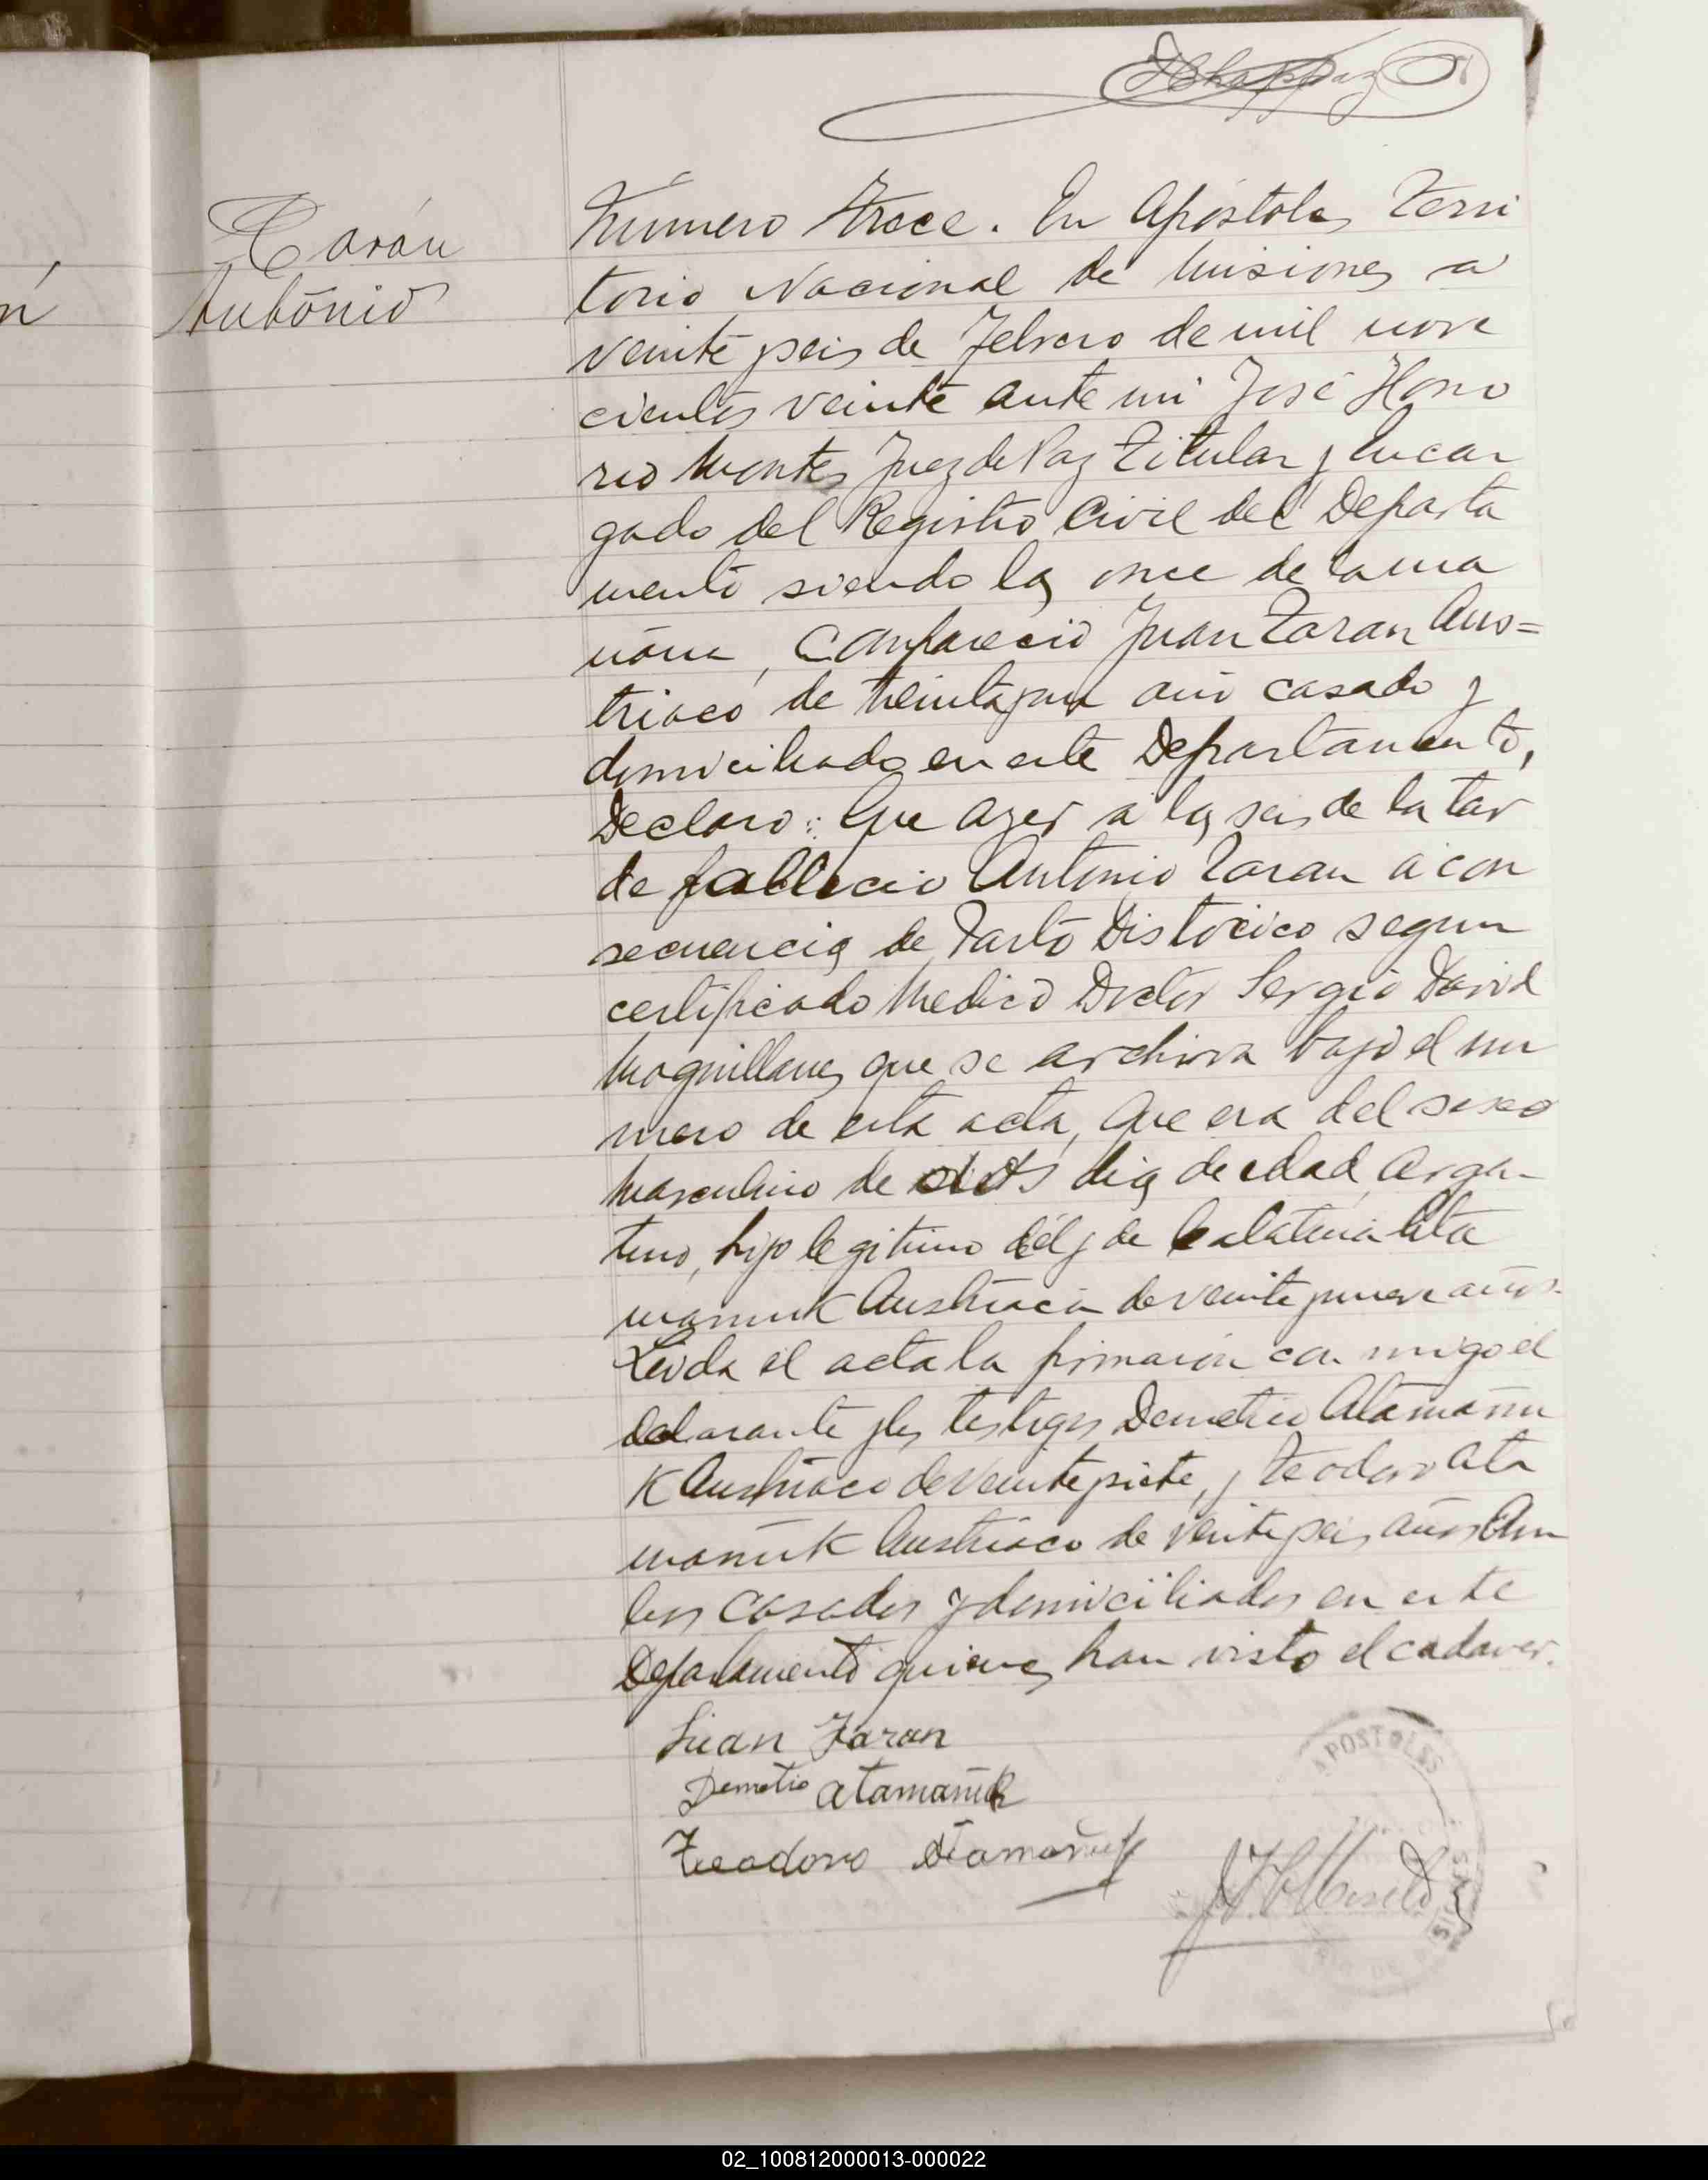 Tarán
Antonio
Número trece. En Apóstoles Terri
torio Nacional de Misiones a
veinte y seis de Febrero de mil nove
cientos veinte ante mi José Hono
rio Montes Juez de Paz Titular y Encar
gado del Registro Civil del Departa
mento siendo las once de la ma
ñana, Compareció Juan Taran Aus=
triaco de treinta y un año casado y
domiciliado en este Departamento,
Declaro: Que ayer a las seis de la tar
de fallecio Antonio Taran a con
secuencia de Parto Distócico segun
certificado Medico Doctor Sergio David
que se archiva bajo el nu
mero de esta acta, Que era del sexo
Masculino de dos dias de edad Argen-
tino, hijo legitimo del y de Catalina Ata
manuk Austriaca de veinte y nueve años.
Leida el acta la firmaron con migo el
declarante y los testigos Demetrio Atamañu
k Austriaco de veinte y siete, y Teodoro Ata
mañuk Austriaco de veinte y seis años Am
bos casados y domiciliados en este
Departamento quienes han visto el cadaver.
Juan Taran
Demetrio Atamañuk
Teodoro Atamañuk
APOSTOLES
02_100812000013-000022